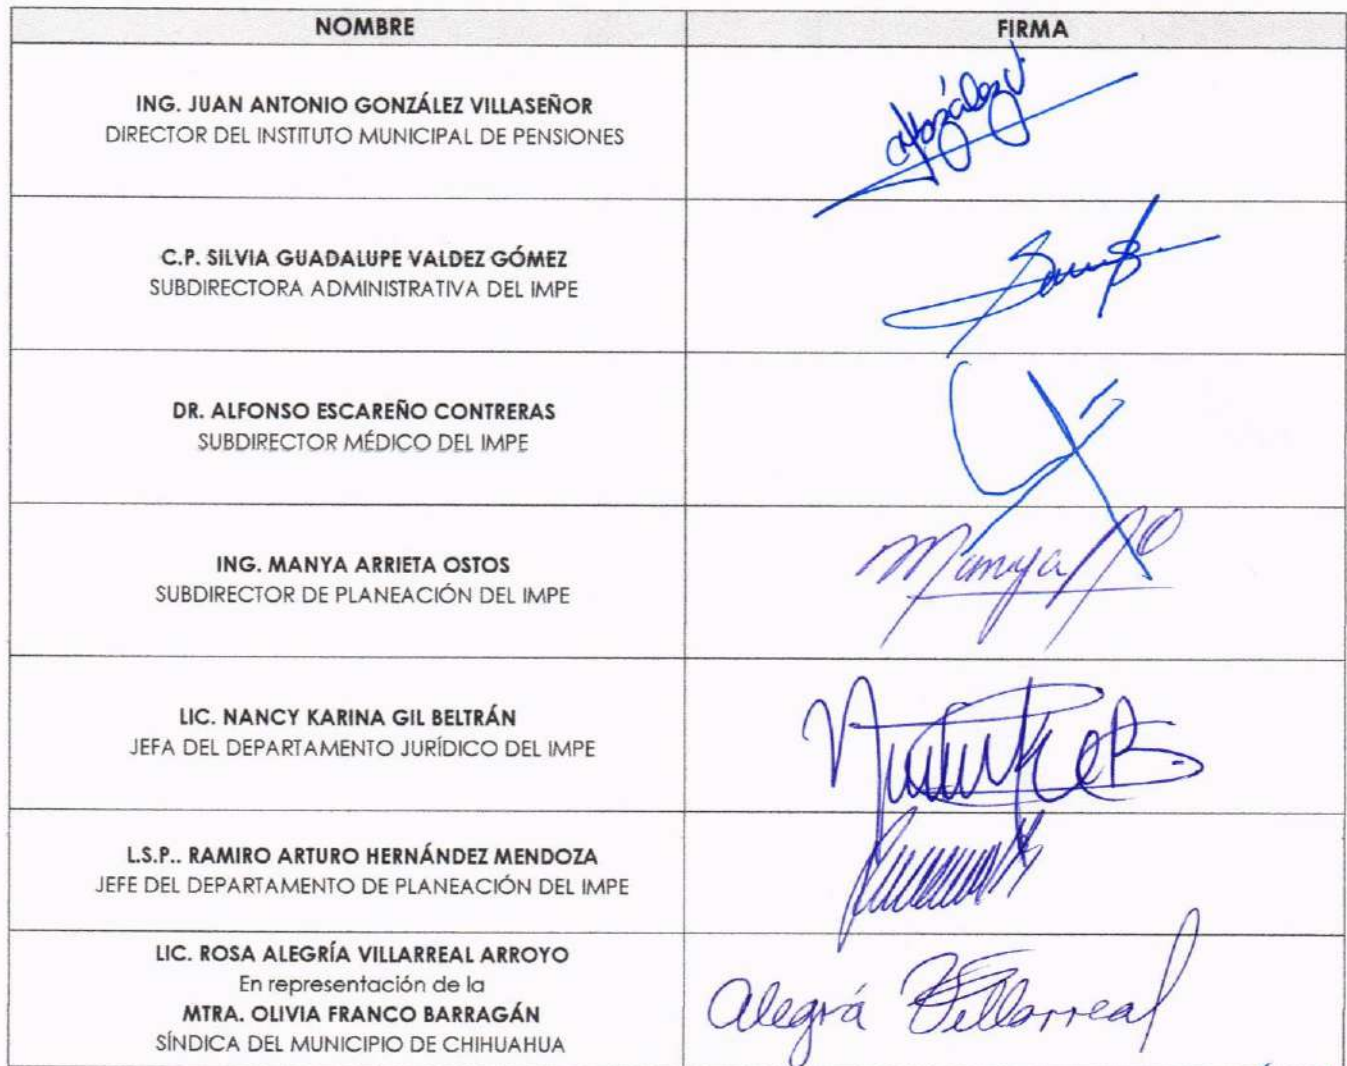 NOMBRE FIRMA
ING. JUAN ANTONIO GONZÁLEZ VILLASEÑOR
DIRECTOR DEL INSTITUTO MUNICIPAL DE PENSIONES
González V.
C.P. SILVIA GUADALUPE VALDEZ GÓMEZ
SUBDIRECTORA ADMINISTRATIVA DEL IMPE
DR. ALFONSO ESCAREÑO CONTRERAS
SUBDIRECTOR MÉDICO DEL IMPE
ING. MANYA ARRIETA OSTOS
SUBDIRECTOR DE PLANEACIÓN DEL IMPE
Manya
LIC. NANCY KARINA GIL BELTRÁN
JEFA DEL DEPARTAMENTO JURÍDICO DEL IMPE
L.S.P.. RAMIRO ARTURO HERNÁNDEZ MENDOZA
JEFE DEL DEPARTAMENTO DE PLANEACIÓN DEL IMPE
LIC. ROSA ALEGRÍA VILLARREAL ARROYO
En representación de la
MTRA. OLIVIA FRANCO BARRAGÁN
SÍNDICA DEL MUNICIPIO DE CHIHUAHUA
Alegrá Villarreal